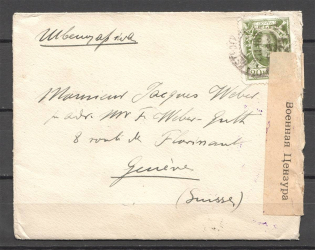 Швейцарія
Monsieur Jacques Weber
p. adr. Mr F. Weber-
8 route de Florissant
Genève
(Suisse)
Военная Цензура